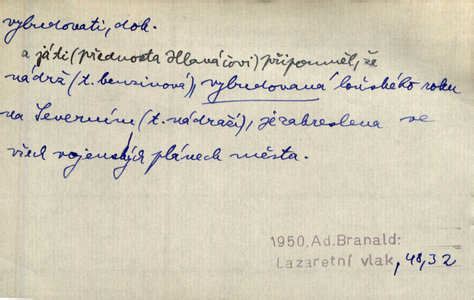 vybudovati, dok.
a já ti (přednosta Hlaváčovi) připomněl, že
nádrž (t. benzinová), vybudovaná loňského roku
na Severním (t. nádraží), je zakreslena ve
všech vojenských plánech města.
1950, Ad. Branald:
Lazaretní vlak, 48, 32